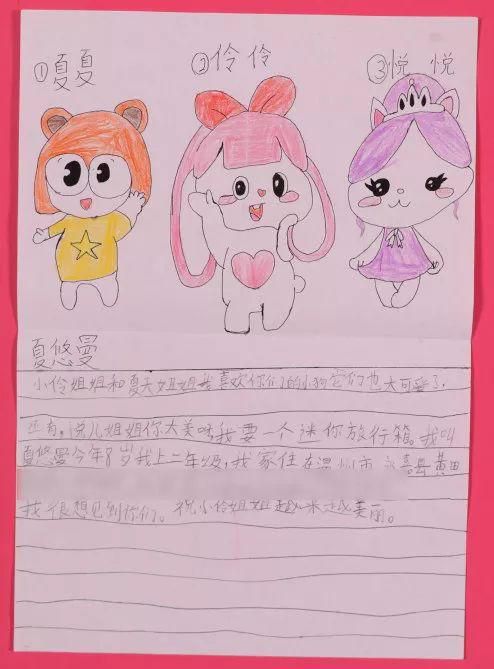 ①夏夏
②伶伶
③悦悦
夏悠曼
小伶姐姐和夏天姐姐我喜欢你们的小狗它们也太可爱了.
还有,悦儿姐姐你太美呀我要一个迷你旅行箱。我叫
夏悠曼今年8岁我上二年级,我家住在温州市永嘉县黄田
我很想见到你们。祝小伶姐姐越来越美丽。